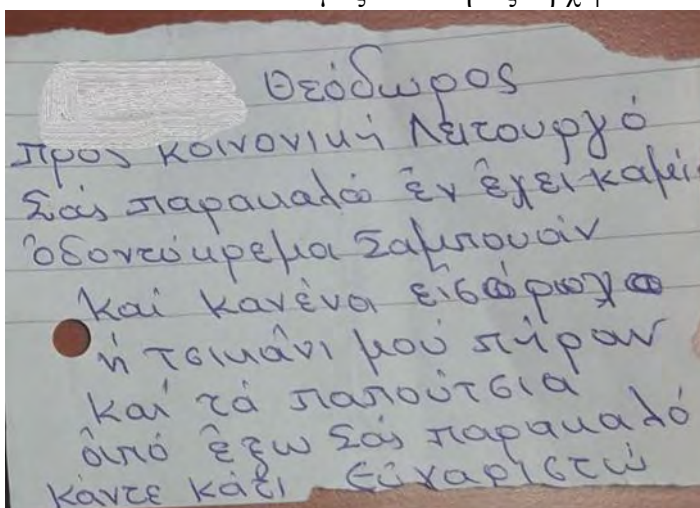 Θεόδωρος
πρός κοινονική Λειτουργό
Σάς παρακαλώ ἐν ἔχει καμεί
ὁδοντόκρεμα Σαμπουάν
Καί κανένα
ή τσικάνι μού πήραν
Καί τά παπούτσια
ἀπό ἔξω Σάς παρακαλό
κάντε κάτι Εύχαριστώ